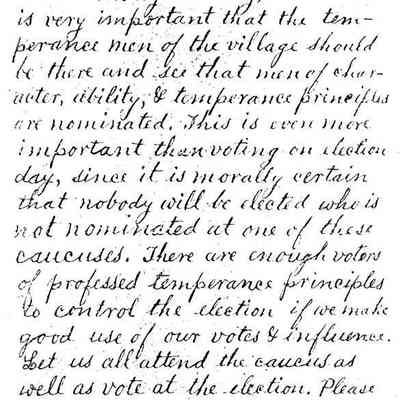 is very important that the tem-
perance men of the village should
be there and see that men of char-
acter, ability, & temperance principles
are nominated. This is even more
important than voting on election
day, since it is morally certain
that nobody will be elected who is
not nominated at one of these
caucuses. There are enough voters
of professed temperance principles
to control the election if we make
good use of our votes & influence.
Let us all attend the caucus as
well as vote at the election. Please